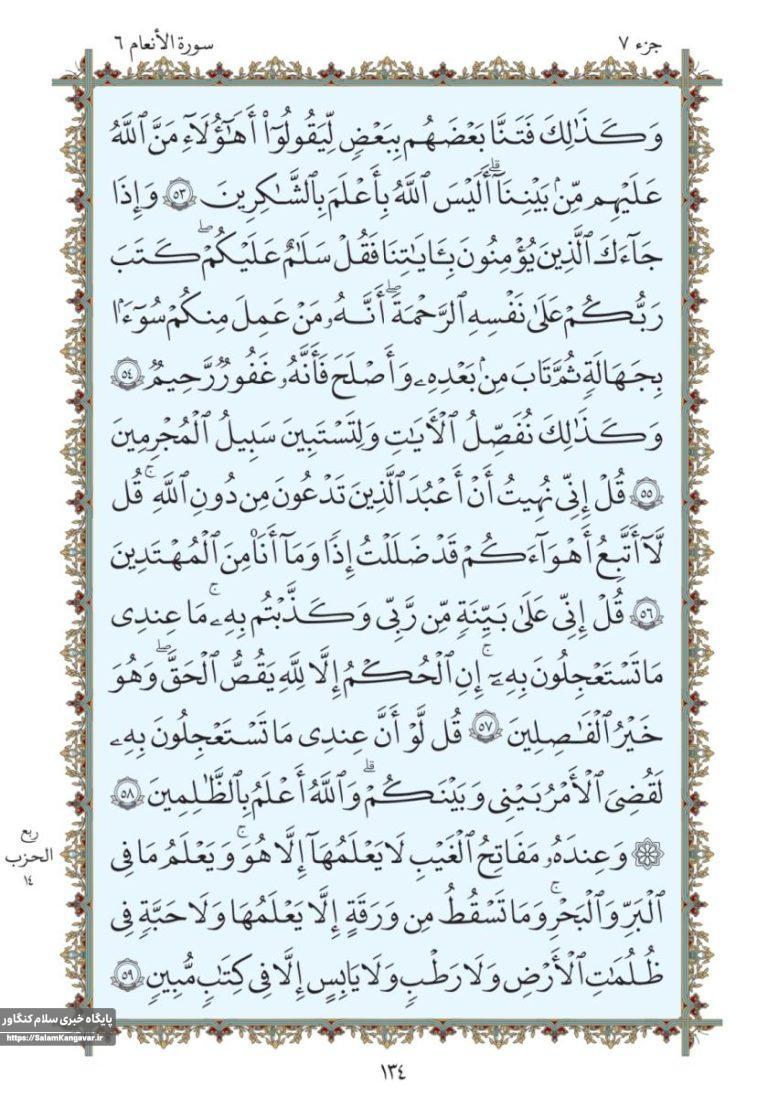 جزء ٧
سورة الأنعام ٦
وَكَذَٰلِكَ فَتَنَّا بَعۡضَهُم بِبَعۡضٖ لِّيَقُولُوٓاْ أَهَٰٓؤُلَآءِ مَنَّ ٱللَّهُ
عَلَيۡهِم مِّنۢ بَيۡنِنَآۗ أَلَيۡسَ ٱللَّهُ بِأَعۡلَمَ بِٱلشَّٰكِرِينَ ٥٣ وَإِذَا
جَآءَكَ ٱلَّذِينَ يُؤۡمِنُونَ بِـَٔايَٰتِنَا فَقُلۡ سَلَٰمٌ عَلَيۡكُمۡۖ كَتَبَ
رَبُّكُمۡ عَلَىٰ نَفۡسِهِ ٱلرَّحۡمَةَۖ أَنَّهُۥ مَنۡ عَمِلَ مِنكُمۡ سُوٓءَۢا
بِجَهَٰلَةٖ ثُمَّ تَابَ مِنۢ بَعۡدِهِۦ وَأَصۡلَحَ فَأَنَّهُۥ غَفُورٞ رَّحِيمٞ ٥٤
وَكَذَٰلِكَ نُفَصِّلُ ٱلۡأٓيَٰتِ وَلِتَسۡتَبِينَ سَبِيلُ ٱلۡمُجۡرِمِينَ
٥٥ قُلۡ إِنِّي نُهِيتُ أَنۡ أَعۡبُدَ ٱلَّذِينَ تَدۡعُونَ مِن دُونِ ٱللَّهِۚ قُل
لَّآ أَتَّبِعُ أَهۡوَآءَكُمۡ قَدۡ ضَلَلۡتُ إِذٗا وَمَآ أَنَا۠ مِنَ ٱلۡمُهۡتَدِينَ
٥٦ قُلۡ إِنِّي عَلَىٰ بَيِّنَةٖ مِّن رَّبِّي وَكَذَّبۡتُم بِهِۦۚ مَا عِندِي
مَا تَسۡتَعۡجِلُونَ بِهِۦٓۚ إِنِ ٱلۡحُكۡمُ إِلَّا لِلَّهِۖ يَقُصُّ ٱلۡحَقَّۖ وَهُوَ
خَيۡرُ ٱلۡفَٰصِلِينَ ٥٧ قُل لَّوۡ أَنَّ عِندِي مَا تَسۡتَعۡجِلُونَ بِهِۦ
لَقُضِيَ ٱلۡأَمۡرُ بَيۡنِي وَبَيۡنَكُمۡۗ وَٱللَّهُ أَعۡلَمُ بِٱلظَّٰلِمِينَ ٥٨
۞ وَعِندَهُۥ مَفَاتِحُ ٱلۡغَيۡبِ لَا يَعۡلَمُهَآ إِلَّا هُوَۚ وَيَعۡلَمُ مَا فِي
ٱلۡبَرِّ وَٱلۡبَحۡرِۚ وَمَا تَسۡقُطُ مِن وَرَقَةٍ إِلَّا يَعۡلَمُهَا وَلَا حَبَّةٖ فِي
ظُلُمَٰتِ ٱلۡأَرۡضِ وَلَا رَطۡبٖ وَلَا يَابِسٍ إِلَّا فِي كِتَٰبٖ مُّبِينٖ ٥٩
ربع
الحزب
١٤
پایگاه خبری سلام کنگاور
https://SalamKangavar.ir
١٣٤